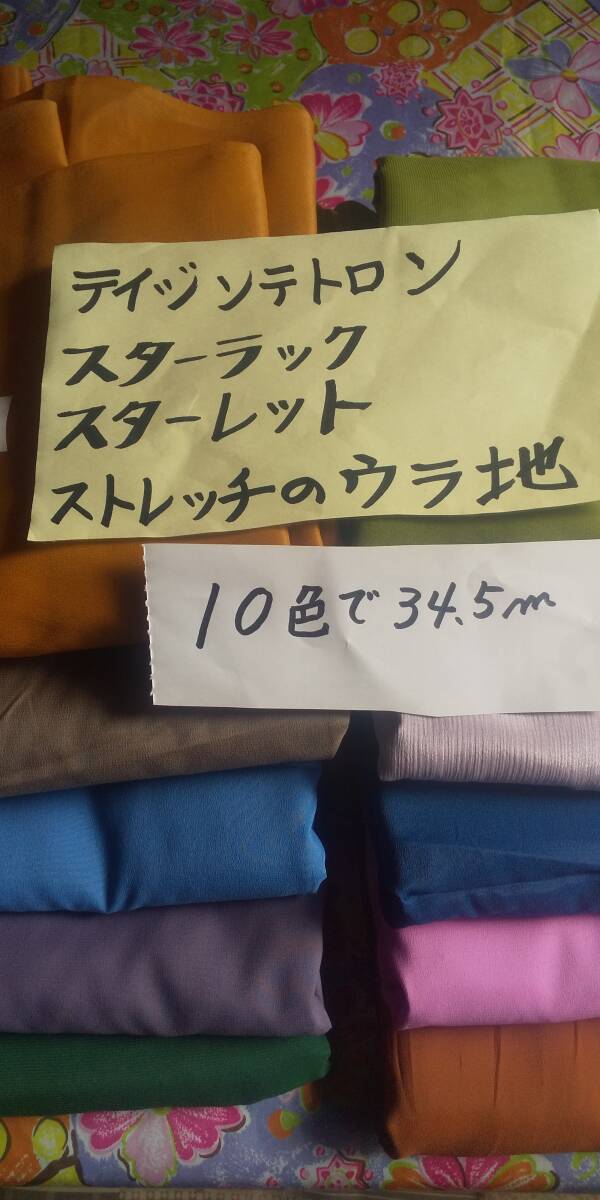 テイジンテトロン
スターラック
スターレット
ストレッチのウラ地
10色で34.5m